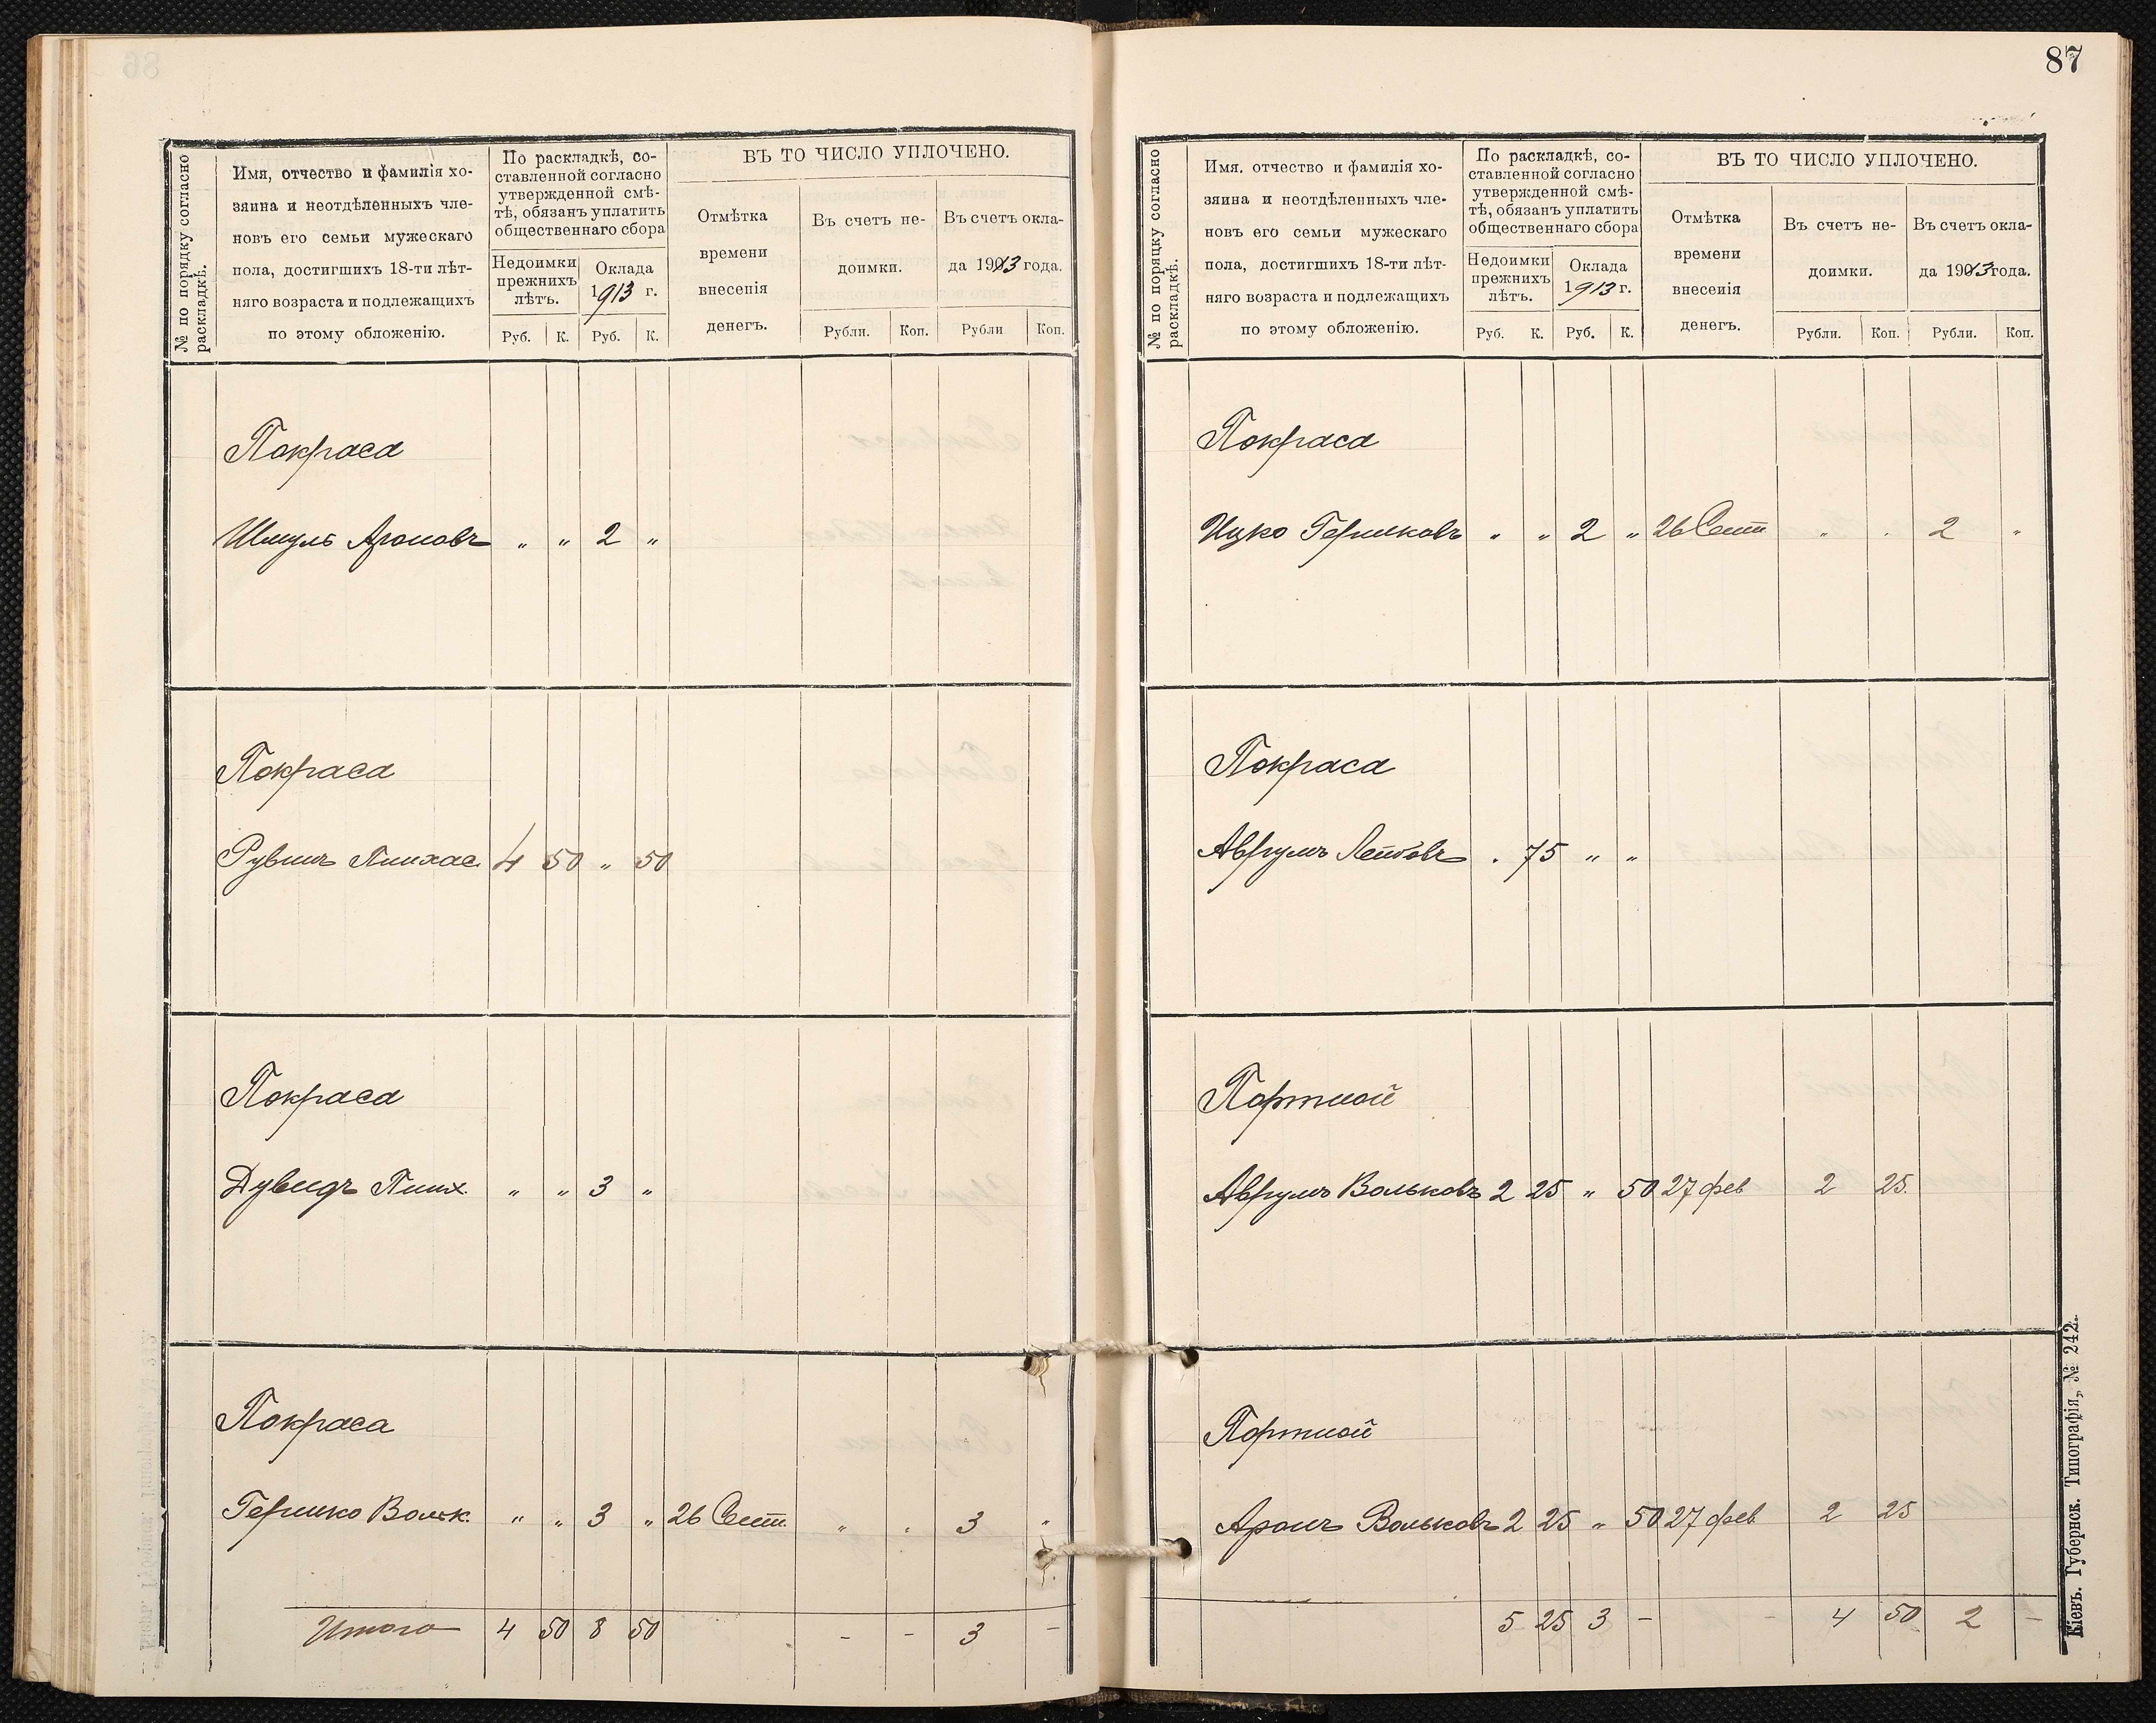 № по порядку согласно
раскладкѣ.
Имя, отчество и фамилія хо-
зяина и неотдѣленныхъ чле-
новъ его семьи мужескаго
пола, достигшихъ 18-ти лѣт-
няго возраста и подлежащихъ
по этому обложенію.
По раскладкѣ, со-
ставленной согласно
утвержденной смѣ-
тѣ, обязанъ уплатить
общественнаго сбора
Недоимки
прежнихъ
лѣтъ.
Оклада
1913 г.
Руб. К. Руб. К.
ВЪ ТО ЧИСЛО УПЛОЧЕНО.
Отмѣтка
времени
внесенія
денегъ.
Въ счетъ не-
доимки.
Въ счетъ окла-
да 1913 года.
Рубли. Коп. Рубли Коп.
Покраса
Шмуль Ароновъ " " 2 "
Покраса
Рувинъ Пинхас. 4 50 " 50
Покраса
Дувидъ Пинх. " " 3 "
Покраса
Гершко Вольк. " " 3 " 26 Сент. " . 3 "
Итого 4 50 8 50 - - 3 -
87
№ по порядку согласно
раскладкѣ.
Имя. отчество и фамилія хо-
зяина и неотдѣленныхъ чле-
новъ его семьи мужескаго
пола, достигшихъ 18-ти лѣт-
няго возраста и подлежащихъ
по этому обложенію.
По раскладкѣ, со-
ставленной согласно
утвержденной смѣ-
тѣ, обязанъ уплатить
общественнаго сбора
Недоимки
прежнихъ
лѣтъ.
Оклада
1913 г.
Руб. К. Руб. К.
ВЪ ТО ЧИСЛО УПЛОЧЕНО.
Отмѣтка
времени
внесенія
денегъ.
Въ счетъ не-
доимки.
Въ счетъ окла-
да 1913 года.
Рубли. Коп. Рубли. Коп.
Покраса
Ицко Гершковъ " " 2 " 26 Сент " . 2 "
Покраса
Аврумъ Лейбовъ . 75 " "
Портной
Аврумъ Вольковъ 2 25 " 50 27 фев 2 25.
Портной
Аронъ Вольковъ 2 25 " 50 27 фев 2 25
5 25 3 - - 4 50 2 -
Кіевъ. Губернск. Типографія, № 242.